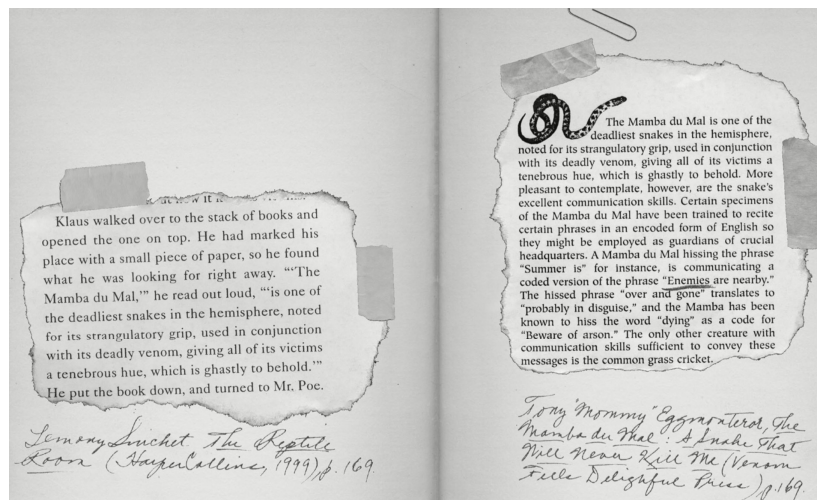 Klaus walked over to the stack of books and
opened the one on top. He had marked his
place with a small piece of paper, so he found
what he was looking for right away. “‘The
Mamba du Mal,’” he read out loud, “‘is one of
the deadliest snakes in the hemisphere, noted
for its strangulatory grip, used in conjunction
with its deadly venom, giving all of its victims
a tenebrous hue, which is ghastly to behold.’”
He put the book down, and turned to Mr. Poe.
Lemony Snicket The Reptile
Room (HarperCollins, 1999) p. 169
The Mamba du Mal is one of the
deadliest snakes in the hemisphere,
noted for its strangulatory grip, used in conjunction
with its deadly venom, giving all of its victims a
tenebrous hue, which is ghastly to behold. More
pleasant to contemplate, however, are the snake’s
excellent communication skills. Certain specimens
of the Mamba du Mal have been trained to recite
certain phrases in an encoded form of English so
they might be employed as guardians of crucial
headquarters. A Mamba du Mal hissing the phrase
“Summer is” for instance, is communicating a
coded version of the phrase “Enemies are nearby.”
The hissed phrase “over and gone” translates to
“probably in disguise,” and the Mamba has been
known to hiss the word “dying” as a code for
“Beware of arson.” The only other creature with
communication skills sufficient to convey these
messages is the common grass cricket.
Tony “Mommy” Eggmonteror, The
Mamba du Mal: A Snake That
Will Never Kill Me (Venom
Feels Delightful Press) p. 169.